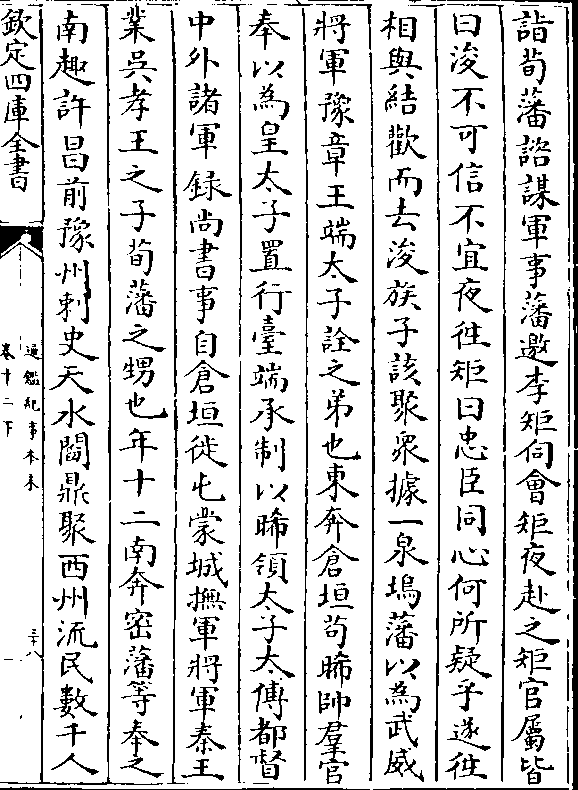 詣荀藩諮謀軍事藩邀李矩同會矩夜赴之矩官屬皆
曰浚不可信不宜夜往矩曰忠臣同心何所疑乎遂往
相與結歡而去浚族子該聚衆據一泉塢藩以為武威
將軍豫章王端太子詮之弟也東奔倉垣苟晞帥羣官
奉以為皇太子置行臺端承制以晞領太子太傅都督
中外諸軍録尚書事自倉垣徙屯蒙城撫軍將軍秦王
業吳孝王之子荀藩之甥也年十二南奔密藩等奉之
南趣許昌前豫州刺史天水閻鼎聚西州流民數千人
欽定四庫全書
通鑑紀事本末
卷十二下
三十八